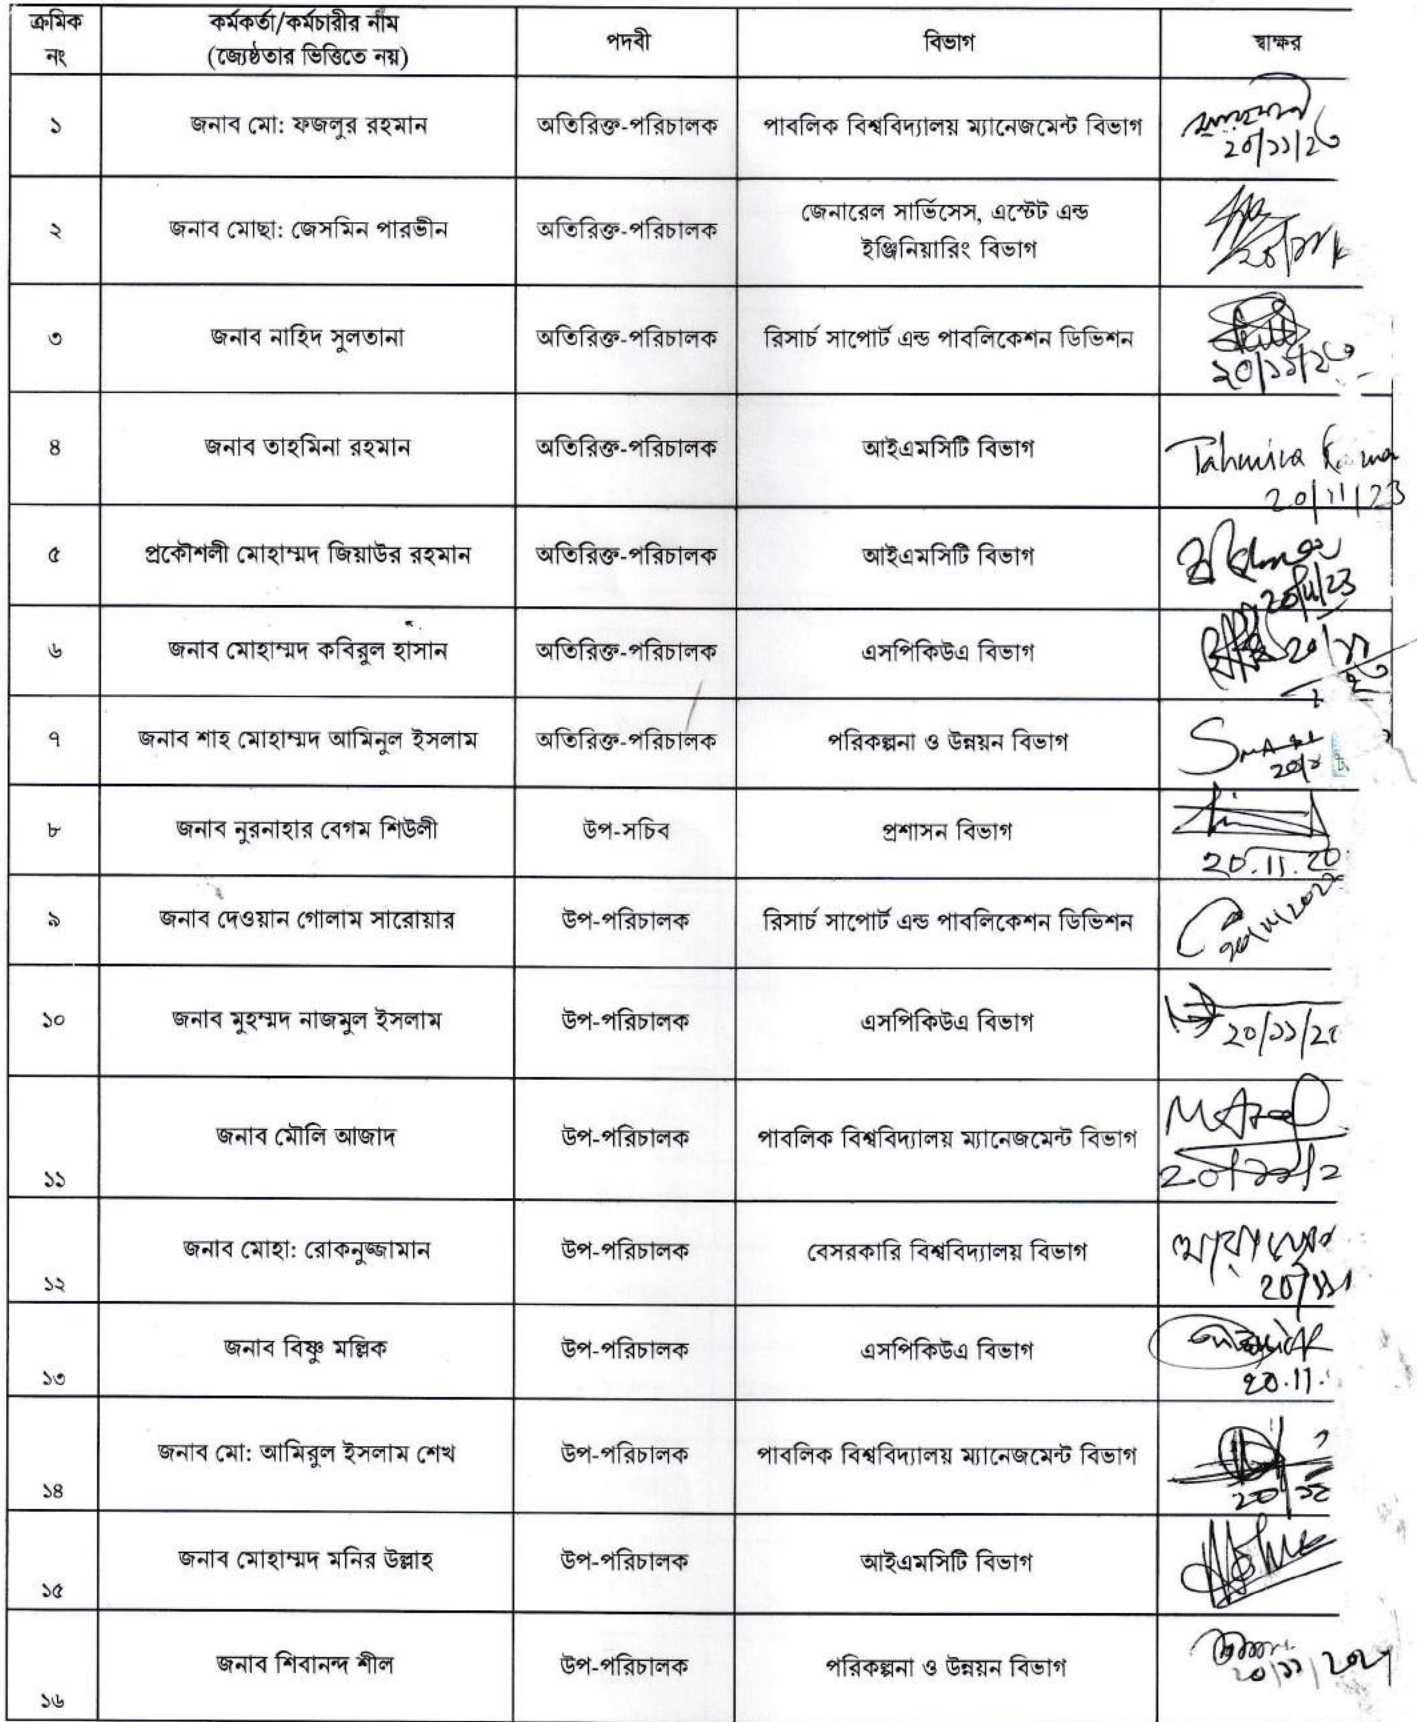 ক্রমিক নং কর্মকর্তা/কর্মচারীর নাম (জ্যেষ্ঠতার ভিত্তিতে নয়) পদবী বিভাগ স্বাক্ষর
১ জনাব মো: ফজলুর রহমান অতিরিক্ত-পরিচালক পাবলিক বিশ্ববিদ্যালয় ম্যানেজমেন্ট বিভাগ
২০/১১/২৩
২ জনাব মোছা: জেসমিন পারভীন অতিরিক্ত-পরিচালক জেনারেল সার্ভিসেস, এস্টেট এন্ড
ইঞ্জিনিয়ারিং বিভাগ
৩ জনাব নাহিদ সুলতানা অতিরিক্ত-পরিচালক রিসার্চ সাপোর্ট এন্ড পাবলিকেশন ডিভিশন
২০/১১/২৩
৪ জনাব তাহমিনা রহমান অতিরিক্ত-পরিচালক আইএমসিটি বিভাগ Tahmina
20/11/23
৫ প্রকৌশলী মোহাম্মদ জিয়াউর রহমান অতিরিক্ত-পরিচালক আইএমসিটি বিভাগ
20/11/23
৬ জনাব মোহাম্মদ কবিরুল হাসান অতিরিক্ত-পরিচালক এসপিকিউএ বিভাগ ২০/১১
৭ জনাব শাহ মোহাম্মদ আমিনুল ইসলাম অতিরিক্ত-পরিচালক পরিকল্পনা ও উন্নয়ন বিভাগ
৮ জনাব নুরনাহার বেগম শিউলী উপ-সচিব প্রশাসন বিভাগ
20.11.20
৯ জনাব দেওয়ান গোলাম সারোয়ার উপ-পরিচালক রিসার্চ সাপোর্ট এন্ড পাবলিকেশন ডিভিশন
১০ জনাব মুহম্মদ নাজমুল ইসলাম উপ-পরিচালক এসপিকিউএ বিভাগ ২০/১১/২
১১ জনাব মৌলি আজাদ উপ-পরিচালক পাবলিক বিশ্ববিদ্যালয় ম্যানেজমেন্ট বিভাগ
২০/১১/২
১২ জনাব মোহা: রোকনুজ্জামান উপ-পরিচালক বেসরকারি বিশ্ববিদ্যালয় বিভাগ
২০/১১
১৩ জনাব বিষ্ণু মল্লিক উপ-পরিচালক এসপিকিউএ বিভাগ
20.11.
১৪ জনাব মো: আমিরুল ইসলাম শেখ উপ-পরিচালক পাবলিক বিশ্ববিদ্যালয় ম্যানেজমেন্ট বিভাগ
১৫ জনাব মোহাম্মদ মনির উল্লাহ উপ-পরিচালক আইএমসিটি বিভাগ
১৬ জনাব শিবানন্দ শীল উপ-পরিচালক পরিকল্পনা ও উন্নয়ন বিভাগ